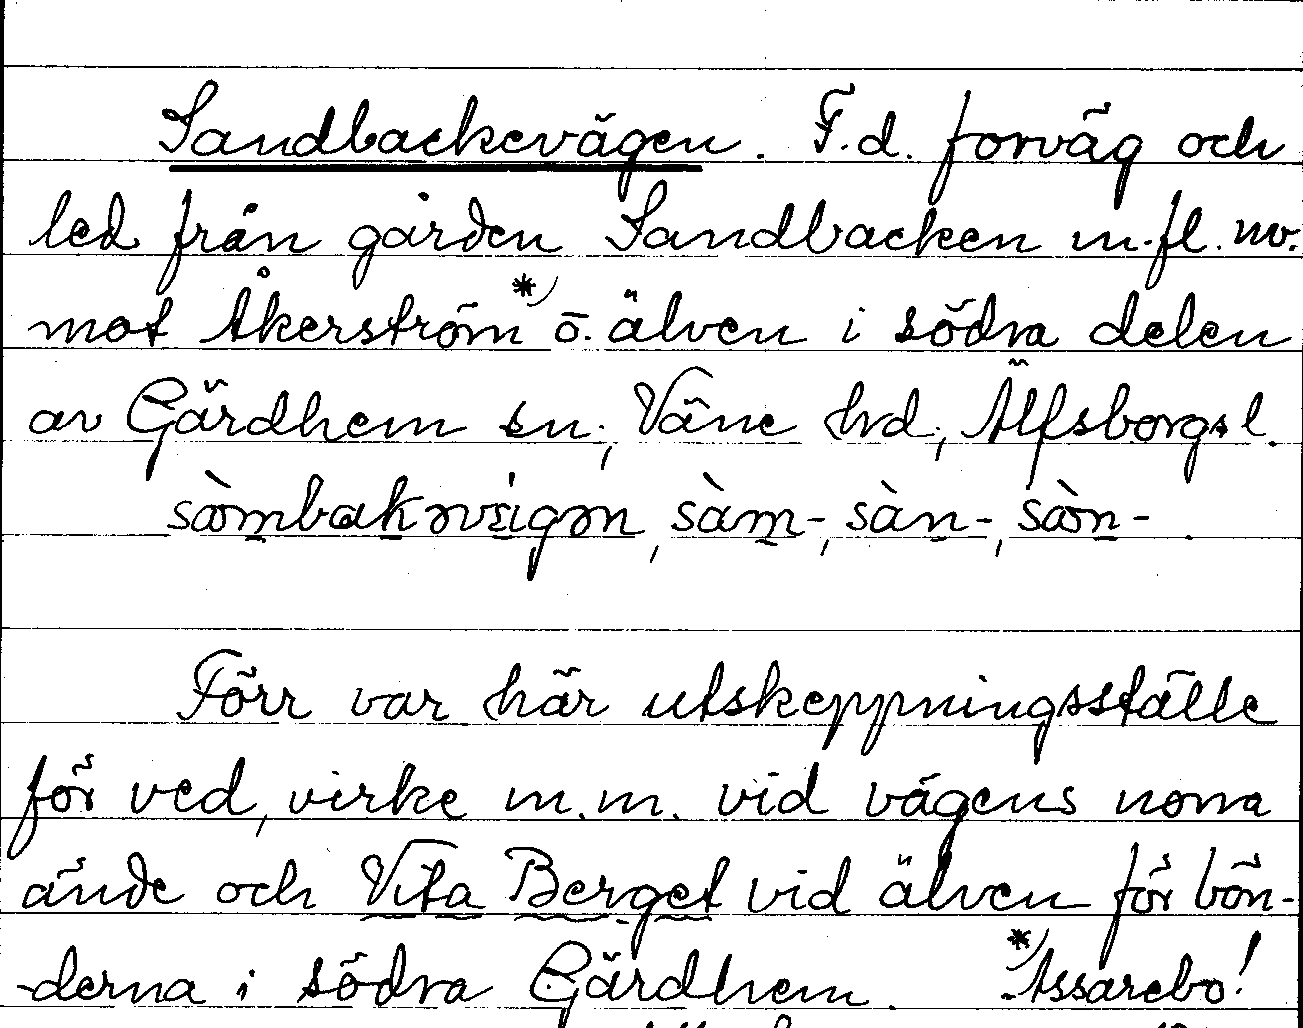 Sandbackevägen. F.d. forväg och
led från gården Sandbacken m.fl. nv.
mot Åkerström*) ö. älven i södra delen
av Gärdhem sn, Väne hd, Älfsborgs l.
sòmbakəvɛ̀igən, sàm-, sàn-, sòn-.
Förr var här utskeppningsställe
för ved, virke m.m. vid vägens norra
ände och Vita Berget vid älven för bön-
-derna i södra Gärdhem. *) Assarebo!